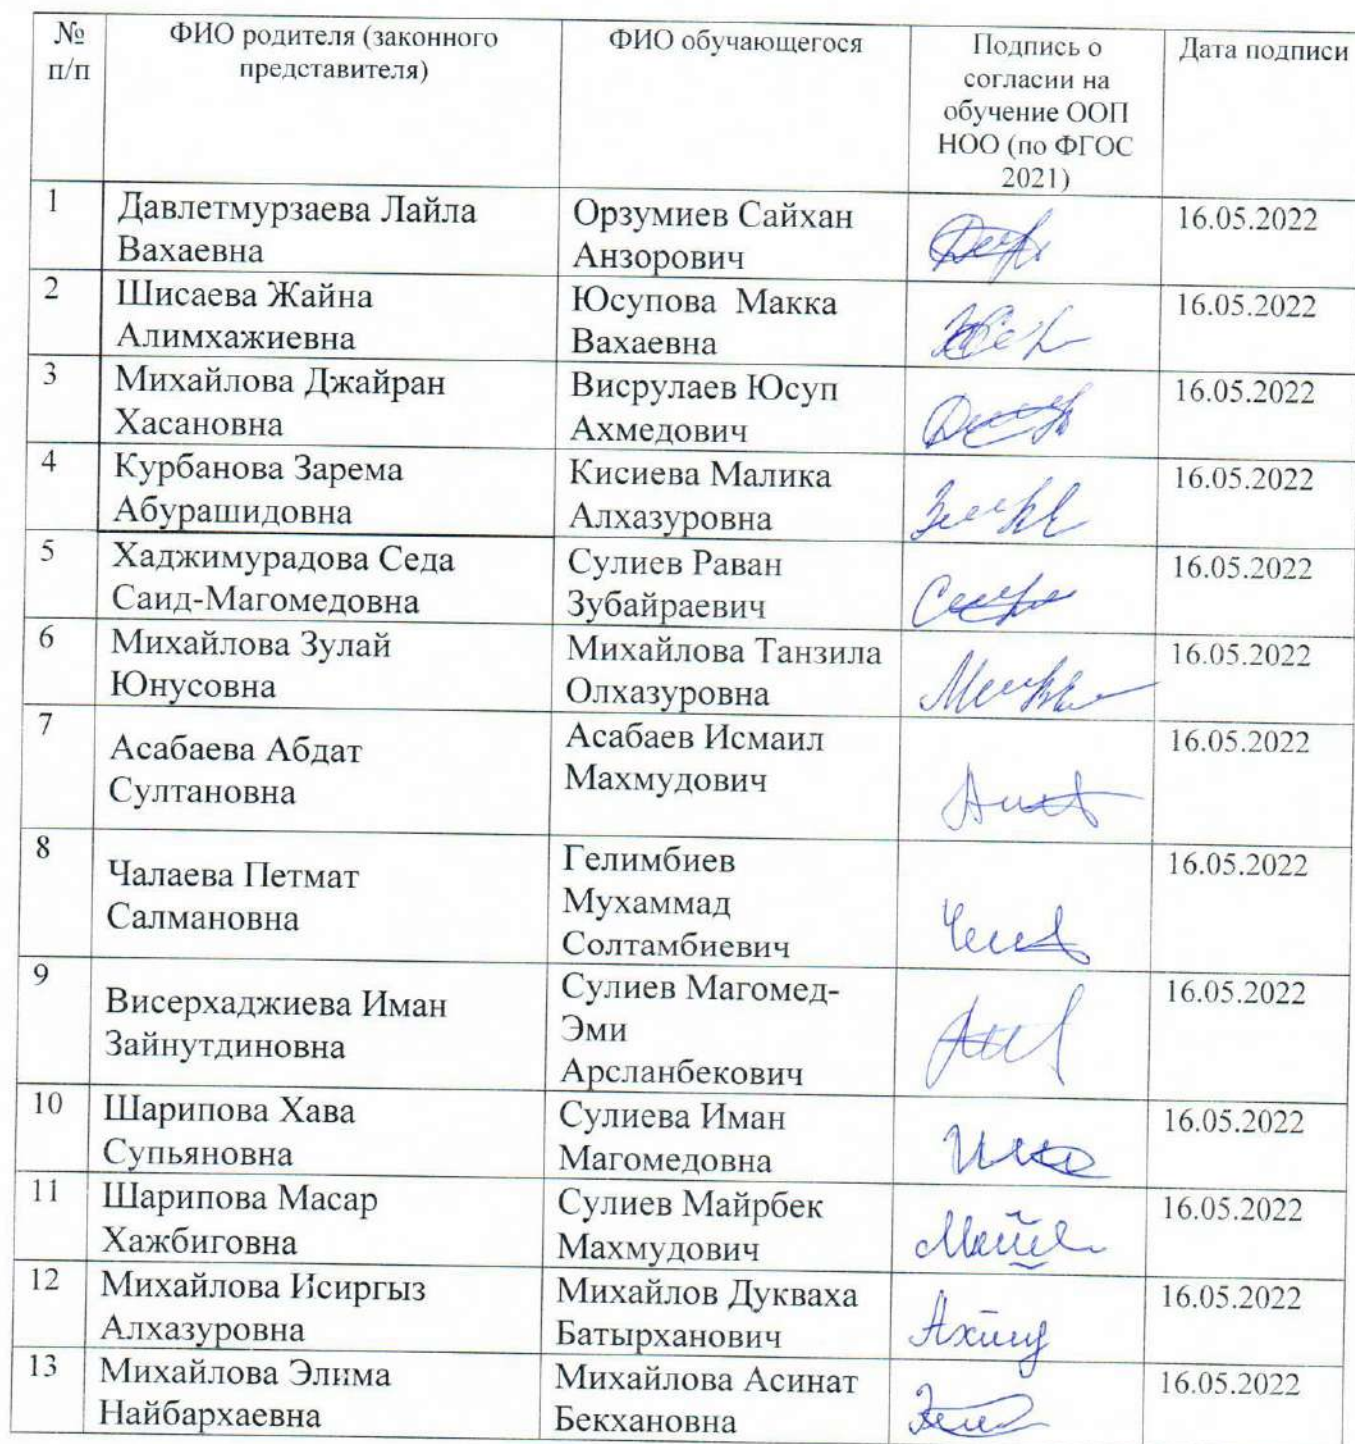 № п/п
ФИО родителя (законного представителя)
ФИО обучающегося
Подпись о согласии на обучение ООП НОО (по ФГОС 2021)
Дата подписи
1
Давлетмурзаева Лайла
Вахаевна
Орзумиев Сайхан
Анзорович
16.05.2022
2
Шисаева Жайна
Алимхажиевна
Юсупова Макка
Вахаевна
16.05.2022
3
Михайлова Джайран
Хасановна
Висрулаев Юсуп
Ахмедович
16.05.2022
4
Курбанова Зарема
Абурашидовна
Кисиева Малика
Алхазуровна
16.05.2022
5
Хаджимурадова Седа
Саид-Магомедовна
Сулиев Раван
Зубайраевич
16.05.2022
6
Михайлова Зулай
Юнусовна
Михайлова Танзила
Олхазуровна
16.05.2022
7
Асабаева Абдат
Султановна
Асабаев Исмаил
Махмудович
16.05.2022
8
Чалаева Петмат
Салмановна
Гелимбиев
Мухаммад
Солтамбиевич
16.05.2022
9
Висерхаджиева Иман
Зайнутдиновна
Сулиев Магомед-
Эми
Арсланбекович
16.05.2022
10
Шарипова Хава
Супьяновна
Сулиева Иман
Магомедовна
16.05.2022
11
Шарипова Масар
Хажбиговна
Сулиев Майрбек
Махмудович
16.05.2022
12
Михайлова Исиргыз
Алхазуровна
Михайлов Дукваха
Батырханович
16.05.2022
13
Михайлова Элима
Найбархаевна
Михайлова Асинат
Бекхановна
16.05.2022